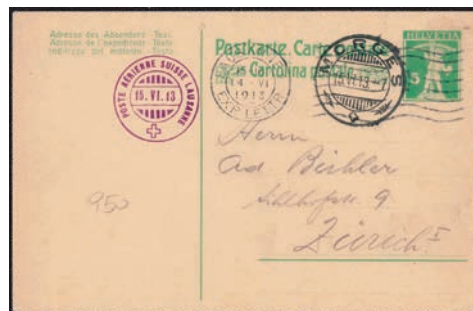 Adresse des Absenders - Text.
Adresse de l'expéditeur - Texte
Indirizzo del mittente - Testo
Postkarte. Carte
Cartolina
HELVETIA
5
POSTE AÉRIENNE SUISSE LAUSANNE
15. VI. 13
14 - VI
1913
EXP. LETTR.
MORGES
15.VI.13.-7
Herrn
Ad.
9
Zürich I
950